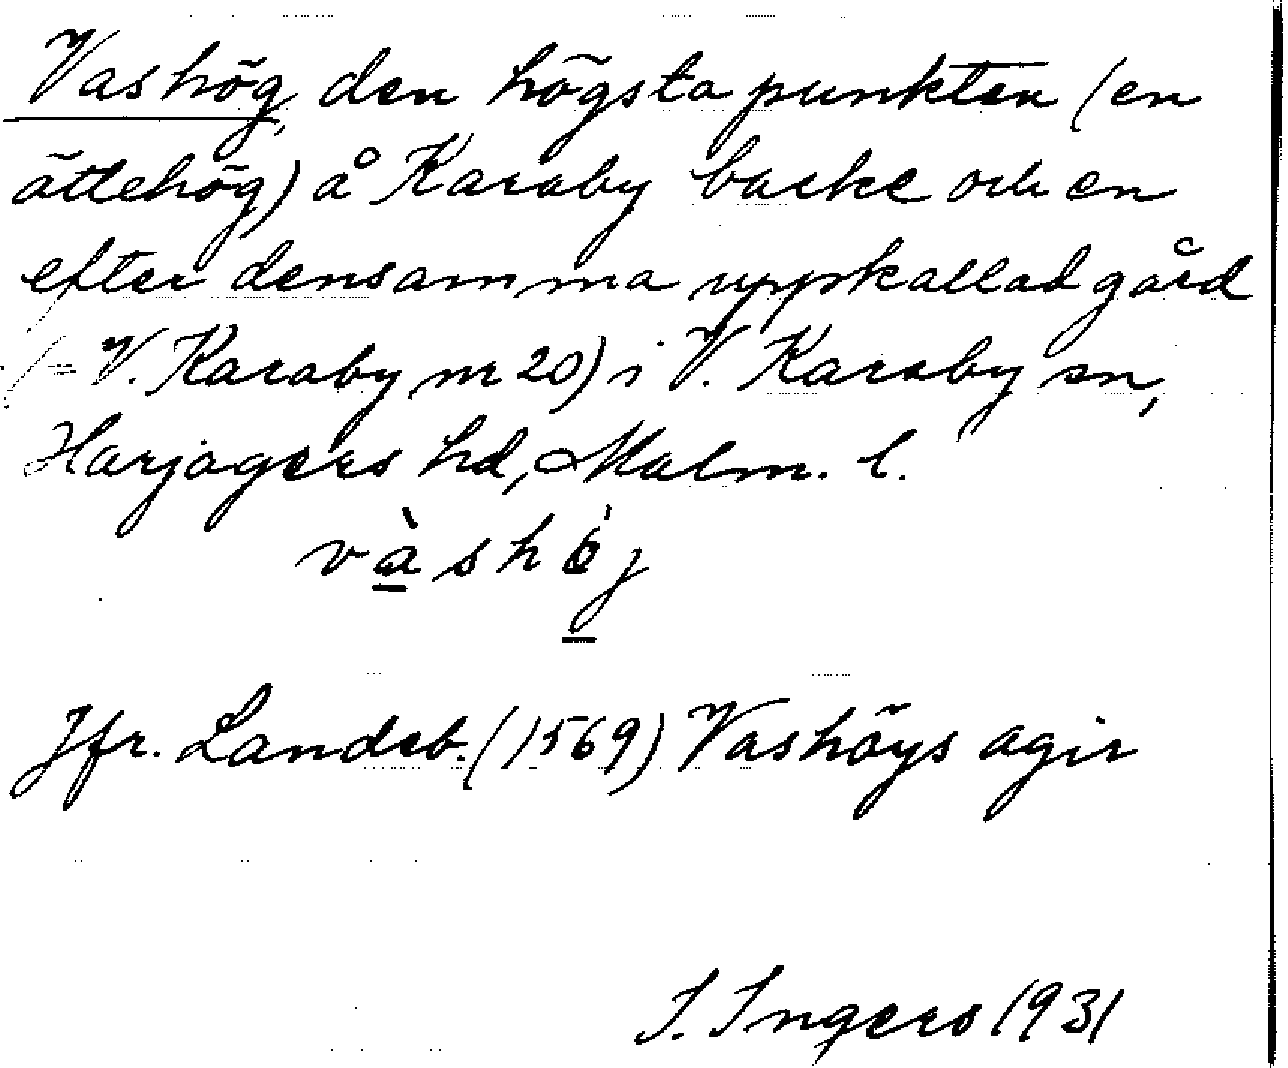 Vashög, den högsta punkten (en
ättehög) å Karaby backe och en
efter densamma uppkallad gård
(= V. Karaby nr 20) i V. Karaby sn,
Harjagers hd, Malm. l.
vàshój
Jfr. Landeb. (1569) Vashöys agir
I. Ingers 1931